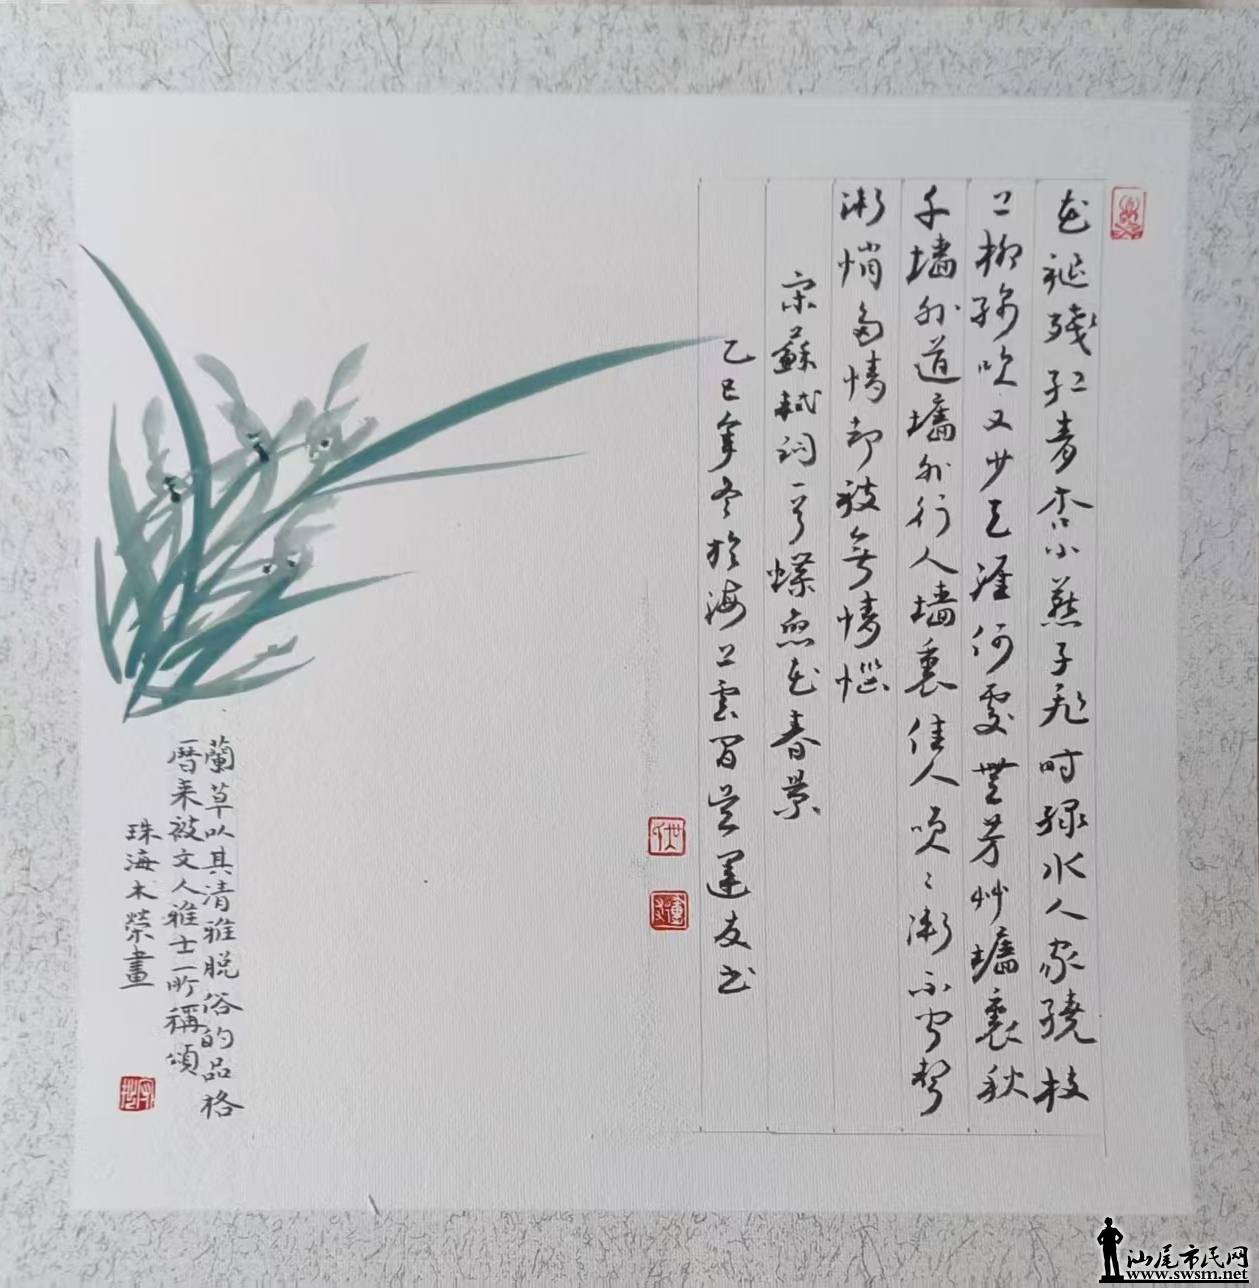 花褪殘紅青杏小燕子飛時綠水人家繞枝
上柳綿吹又少天涯何處無芳艸墻裏秋
千墻外道墻外行人墻裏佳人咲〻漸不聞聲
漸悄多情却被無情惱
宋蘇軾詞一首蝶戀花春景
乙巳年冬於海上雲間吳運友书
蘭草以其清雅脱俗的品格
曆来被文人雅士所稱頌
珠海木榮畫
汕尾市民网
www.swsm.net